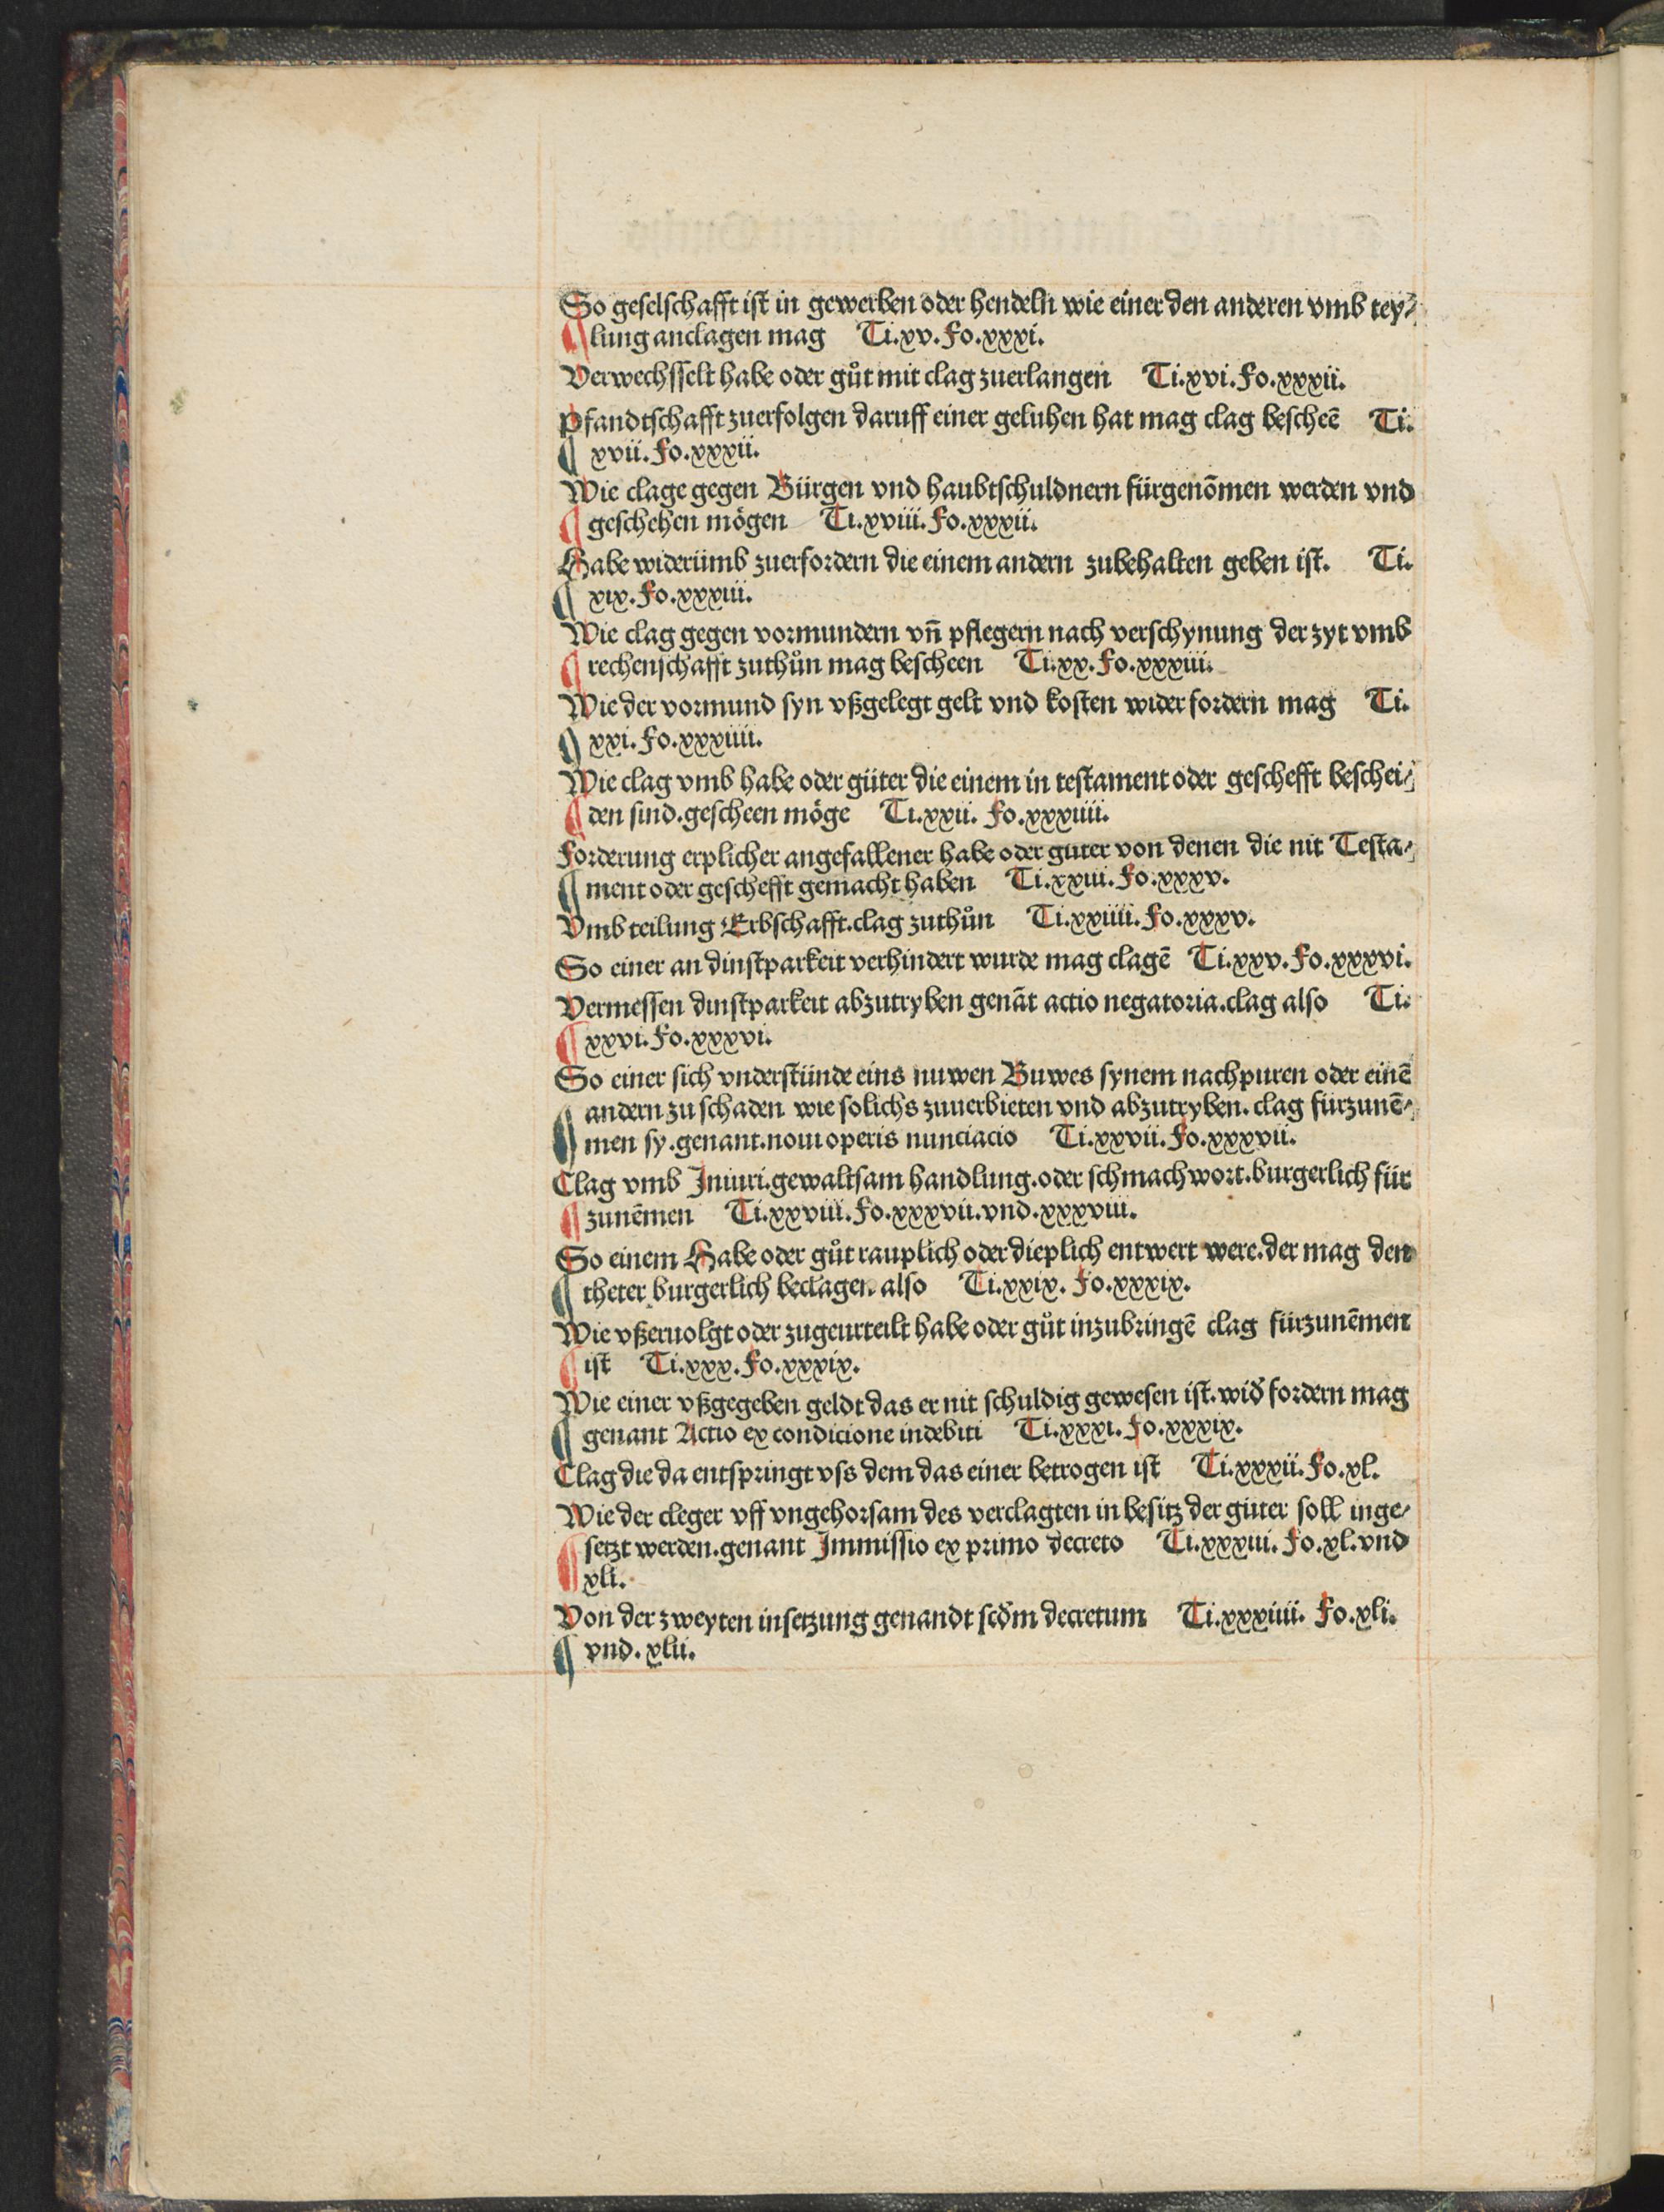 So geselschafft ist in gewerben oder hendeln wie einer den anderen vmb tey⸗
¶ lung anclagen mag Ti.xv.Fo.xxxi.
Verwechsselt habe oder gůt mit clag zuerlangen Ti.xvi.Fo.xxxii.
Pfandtschafft zuerfolgen daruff einer geluhen hat mag clag bescheē Ti.
¶ xvii.Fo.xxxii.
Wie clage gegen Bürgen vnd haubtschuldnern fürgenōmen werden vnd
¶ geschehen mögen Ti.xviii.Fo.xxxii.
Habe widerümb zuerfordern die einem andern zubehalten geben ist. Ti.
¶ xix.Fo.xxxiii.
Wie clag gegen vormundern vñ pflegern nach verschynung der zyt vmb
¶ rechenschafft zuthůn mag bescheen Ti.xx.Fo.xxxiii.
Wie der vormund syn vßgelegt gelt vnd kosten wider fordern mag Ti.
¶ xxi.Fo.xxxiiii.
Wie clag vmb habe oder güter die einem in testament oder geschefft beschei⸗
¶ den sind.gescheen möge Ti.xxii. Fo.xxxiiii.
Forderung erplicher angefallener habe oder guter von denen die nit Testa⸗
¶ ment oder geschefft gemacht haben Ti.xxiii.Fo.xxxv.
Vmb teilung Erbschafft.clag zuthůn Ti.xxiiii.Fo.xxxv.
So einer an dinstparkeit verhindert wurde mag clagē Ti.xxv.Fo.xxxvi.
Vermessen dinstparkeit abzutryben genāt actio negatoria.clag also Ti.
¶ xxvi.Fo.xxxvi.
So einer sich vnderstünde eins nuwen Buwes synem nachpuren oder einē
¶ andern zu schaden wie solichs zuuerbieten vnd abzutryben. clag fürzunē⸗
men sy.genant.noui operis nunciacio Ti.xxvii.Fo.xxxvii.
Clag vmb Iniuri.gewaltsam handlung.oder schmachwort.burgerlich für
¶ zunēmen Ti.xxviii.Fo.xxxvii.vnd.xxxviii.
So einem Habe oder gůt rauplich oder dieplich entwert were.der mag den
¶ theter burgerlich beclagen also Ti.xxix. Fo.xxxix.
Wie vßeruolgt oder zugeurteilt habe oder gůt inzubringē clag fürzunēmen
¶ ist Ti.xxx.Fo.xxxix.
Wie einer vßgegeben geldt das er nit schuldig gewesen ist.wid̄ fordern mag
¶ genant Actio ex condicione indebiti Ti.xxxi.Fo.xxxix.
Clag die da entspringt vss dem das einer betrogen ist Ti.xxxii.Fo.xl.
Wie der cleger vff vngehorsam des verclagten in besitz der guter soll inge⸗
¶ setzt werden.genant Immissio ex primo decreto Ti.xxxiii. Fo.xl.vnd
xli.
Von der zweyten insetzung genandt scd̄m decretum Ti.xxxiiii. Fo.xli.
¶ vnd. xlii.